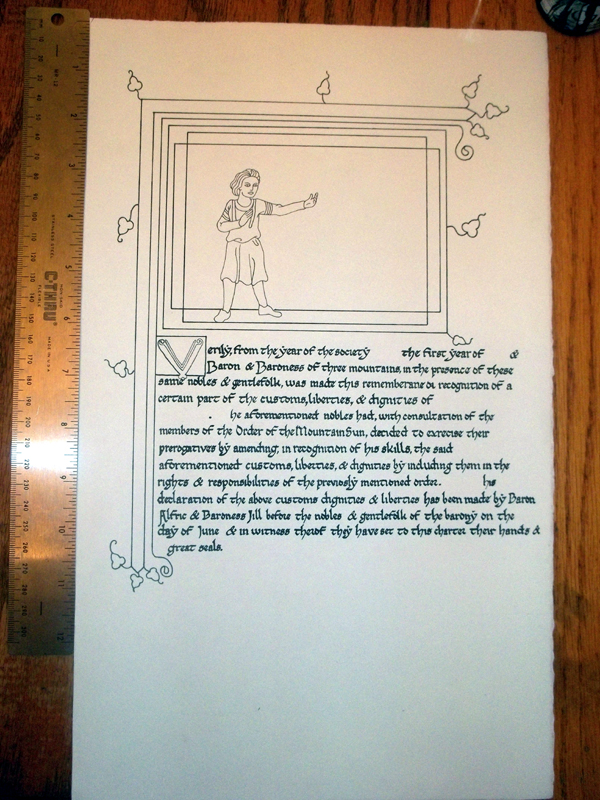 Verily, from the year of the society the first year of &
Baron & Baroness of three mountains, in the presence of these
same nobles & gentlefolk, was made this rememberane or recognition of a
certain part of the customs, liberties, & dignities of
. he aforementioned nobles had, with consultation of the
members of the Order of the Mountain Sun, decided to exercise their
prerogatives by amending, in recognition of his skills, the said
aforementioned customs, liberties, & dignities by including them in the
rights & responsibilities of the previosly mentioned order. his
declaration of the above customs dignities & liberties has been made by Baron
Alfric & Baroness Jill before the nobles & gentlefolk of the barony on the
day of June & in witness therof they have set to this charter their hands &
great seals.
CTHRU
FLEXIBLE
STAINLESS STEEL
MADE IN U.S.A.